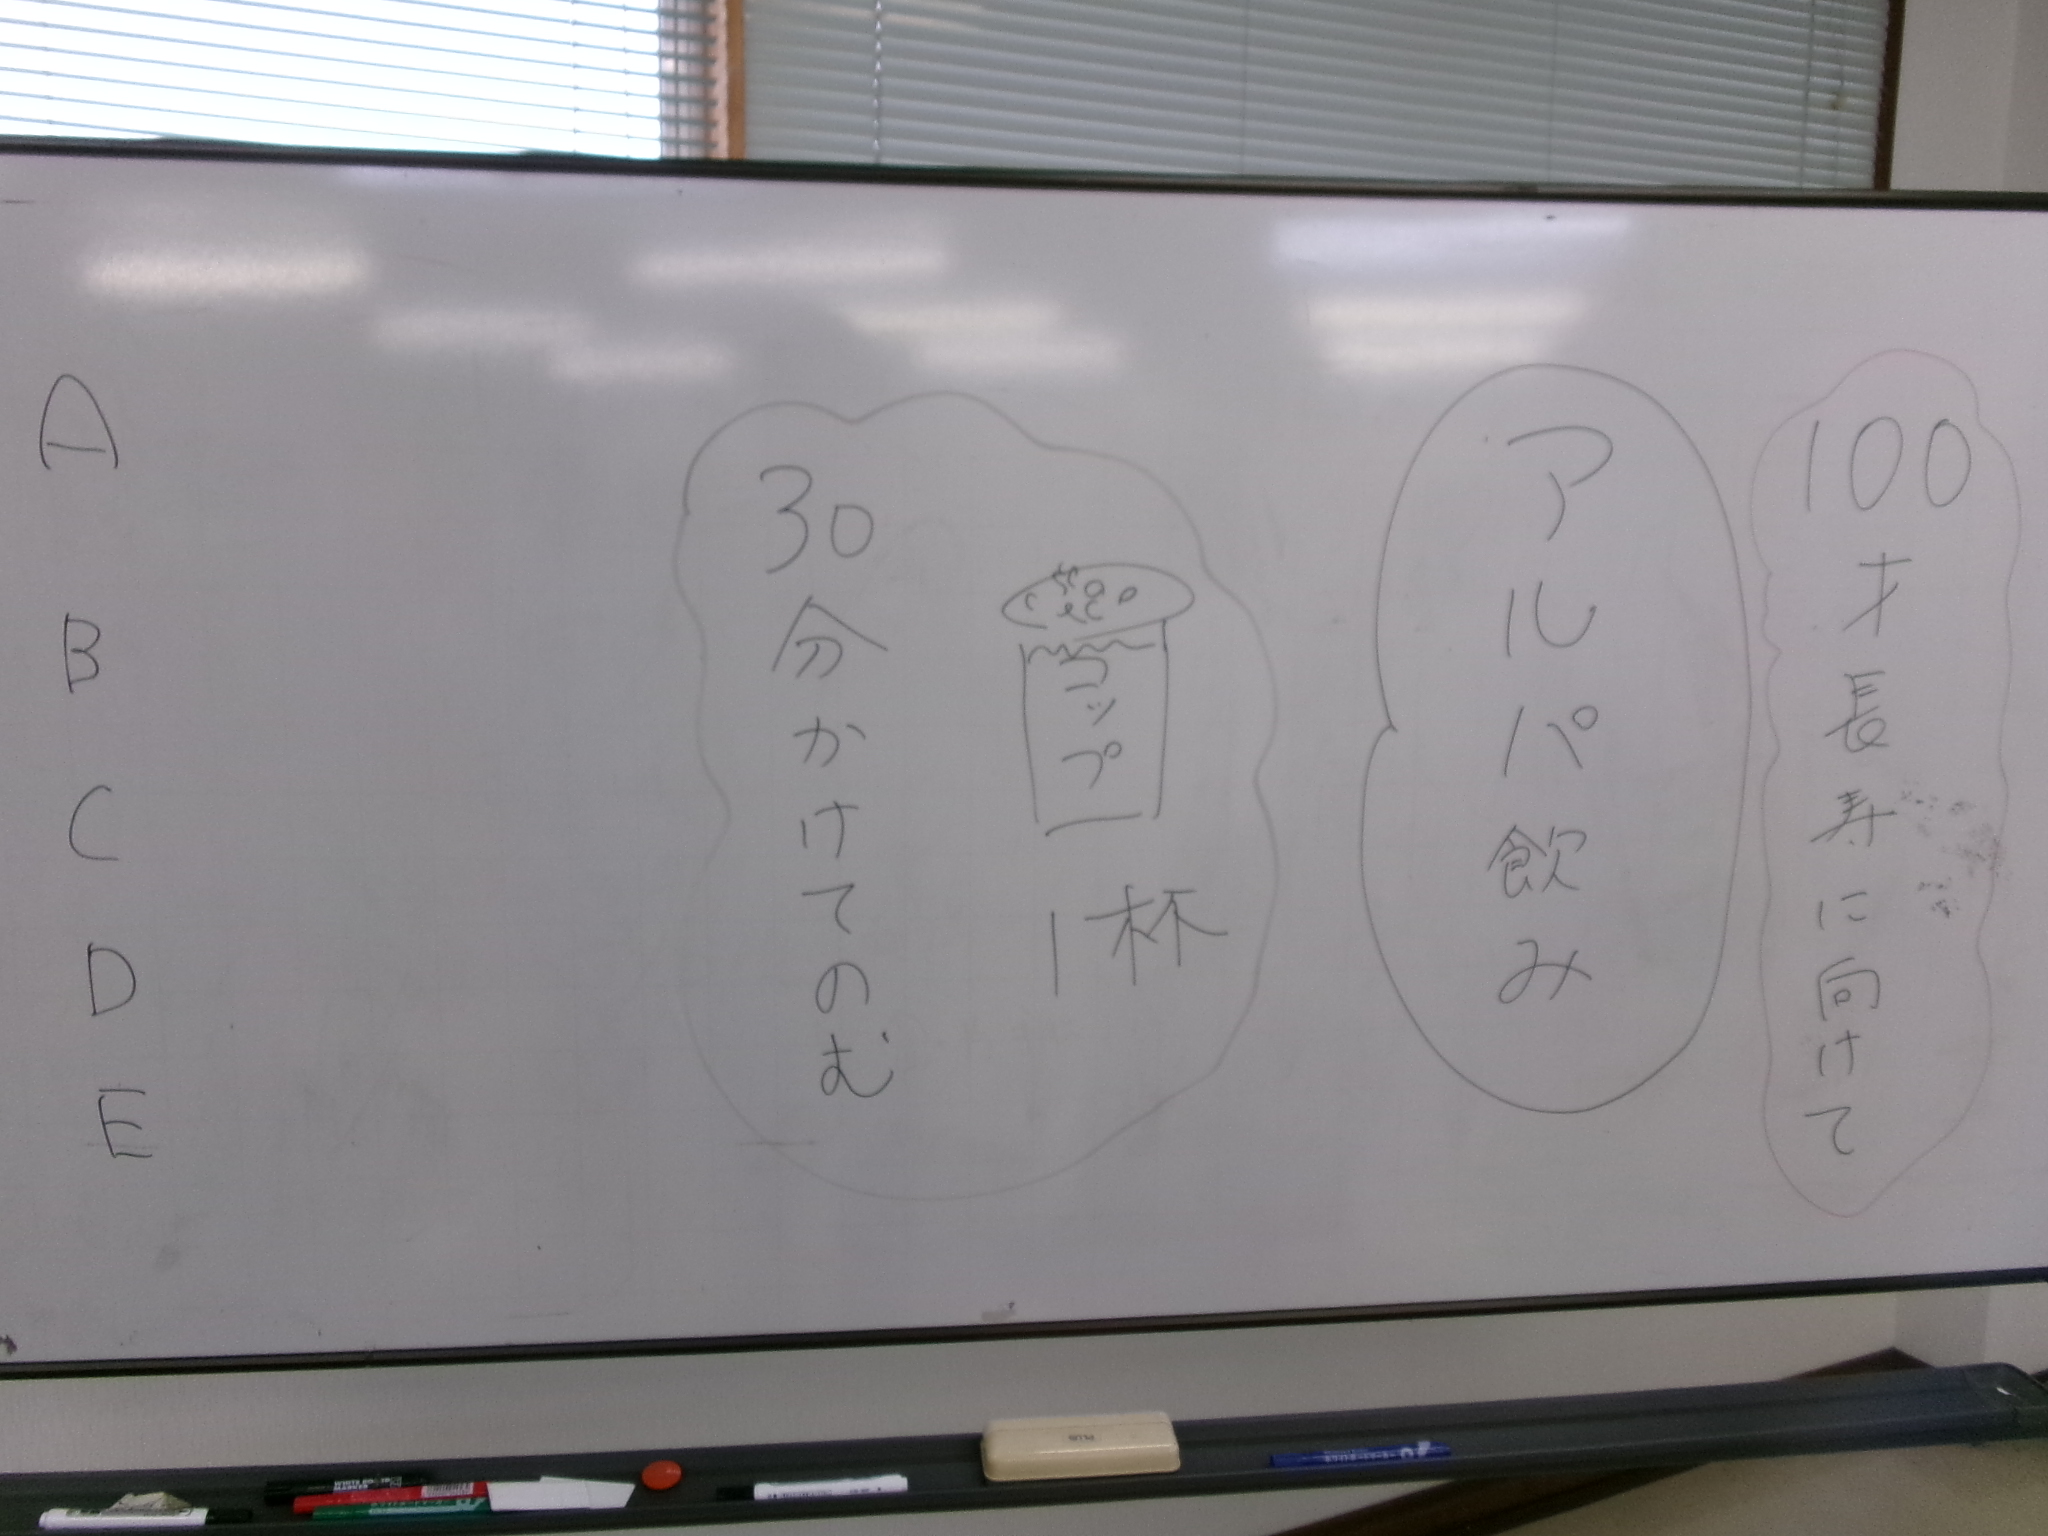 100才長寿に向けて
アルパ飲み
コップ
1杯
30分かけてのむ
A
B
C
D
E
PLUS